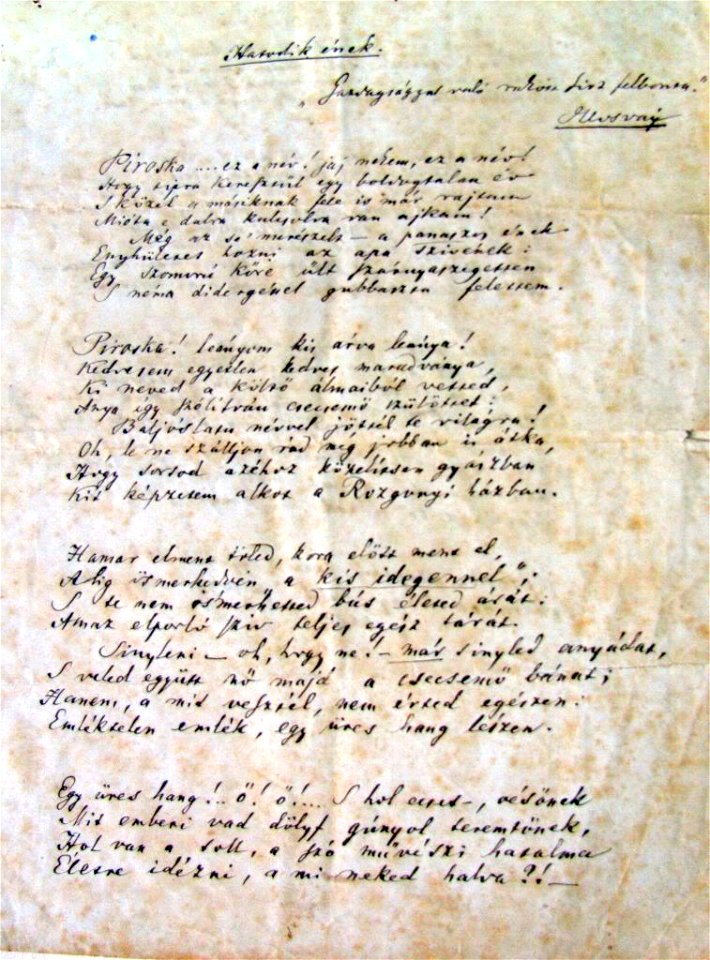 Hatodik ének.
„Gazdagsággal való rakása sirt felbonta."
Ilosvay
Piroska .... ez a név! jaj nekem, ez a név!
Hogy sírva keresztül egy boldogtalan év
S közel a másiknak fele is már rajtam
Mióta e dalra kulcsolva van ajkam!
Még az se merészelt – a panaszos ének
Enyhületet hozni az apa szivének:
Egy szomorú kőre ült szárnyaszegetten
S néma didergéssel gubbaszta felettem.
Piroska! leányom kis árva leánya!
Kedvesem egyetlen kedves maradványa,
Ki neved a költő álmaiból vetted,
Anya így szólítván csecsemő szülöttet:
Baljóslatu névvel jöttél te világra!
Oh, le ne szálljon rád még jobban is átka,
Hogy sorsod azéhoz közelítsen gyászban
Kit képzetem alkot a Rozgonyi házban.
Hamar elment tőled, kora előtt ment el,
Alig ösmerkedvén a „kis idegennel";
S te nem ösmerhetted bús életed árát:
Amaz elporló sziv teljes egész tárát.
Sinyleni – oh, hogy ne! – már sinyled anyádat,
S veled együtt nő majd a csecsemő bánat;
Hanem, a mit vesztél, nem érted egészen:
Emléktelen emlék, egy üres hang lészen.
Egy üres hang!.. Ő! Ő!... S hol ecset-, vésőnek
Mit emberi vad dölyf gúnyol teremtőnek,
Hol van a toll, a szó művészi hatalma
Életre idézni, a mi neked halva?! –